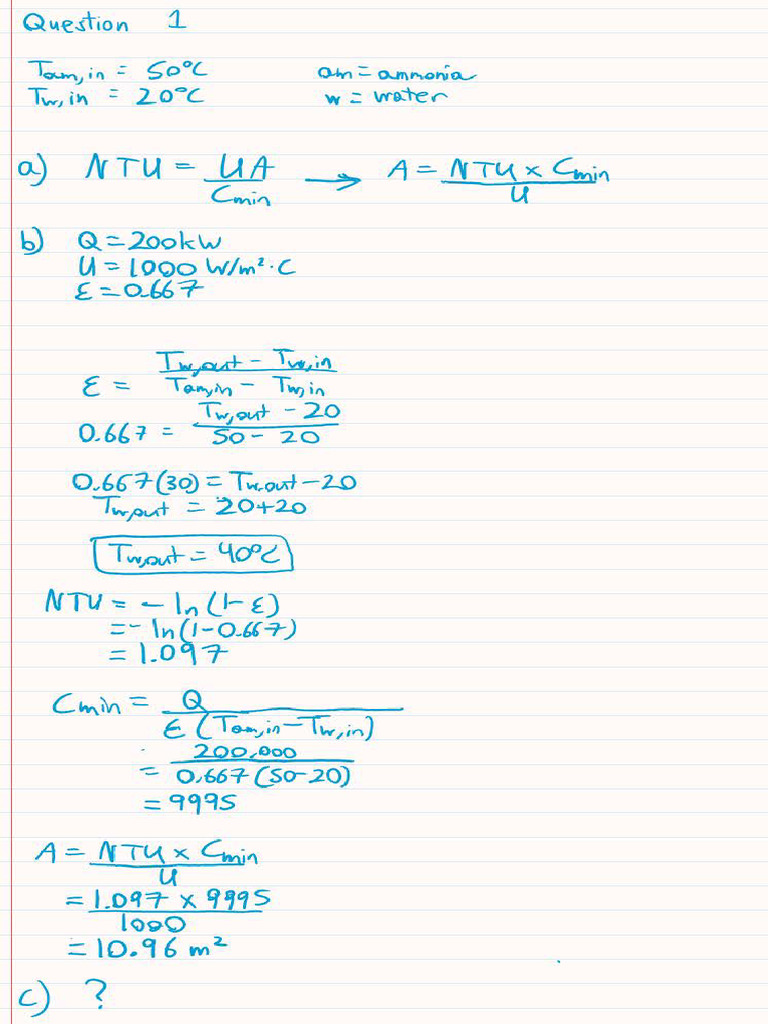 Question 1
Tam,in = 50°C am = ammonia
Tw,in = 20°C w = water
a) NTU = UA / Cmin → A = NTU x Cmin / U
b) Q = 200kW
U = 1000 W/m²·C
ε = 0.667
ε = Tw,out - Tw,in / Tam,in - Tw,in
0.667 = Tw,out - 20 / 50 - 20
0.667(30) = Tw,out - 20
Tw,out = 20+20
Tw,out = 40°C
NTU = - ln (1 - ε)
= - ln(1 - 0.667)
= 1.097
Cmin = Q / ε (Tam,in - Tw,in)
= 200,000 / 0.667 (50-20)
= 9995
A = NTU x Cmin / U
= 1.097 x 9995 / 1000
= 10.96 m²
c) ?